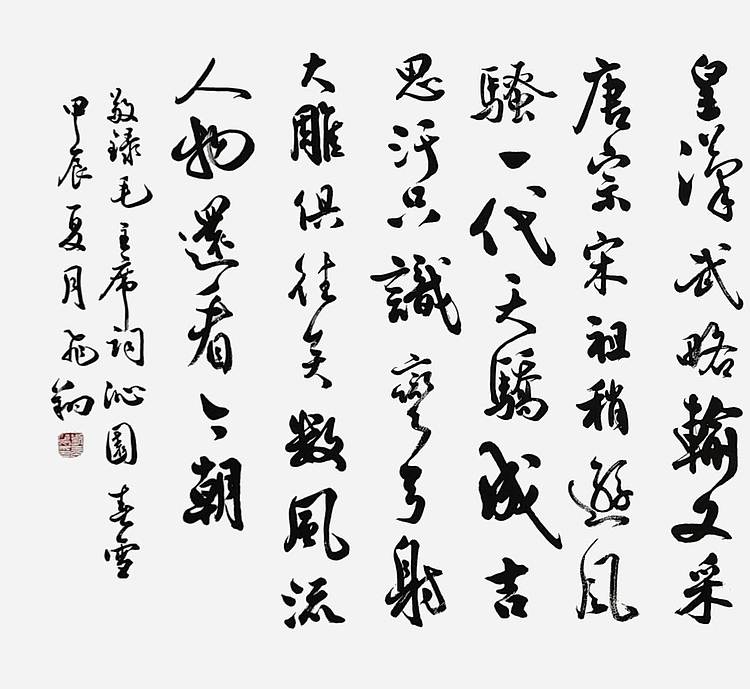 皇漢武略輸文采
唐宗宋祖稍遜風
騷一代天驕成吉
思汗只識彎弓射
大雕俱往矣數風流
人物還看今朝
敬録毛主席詞沁園春雪
甲辰夏月飛翔